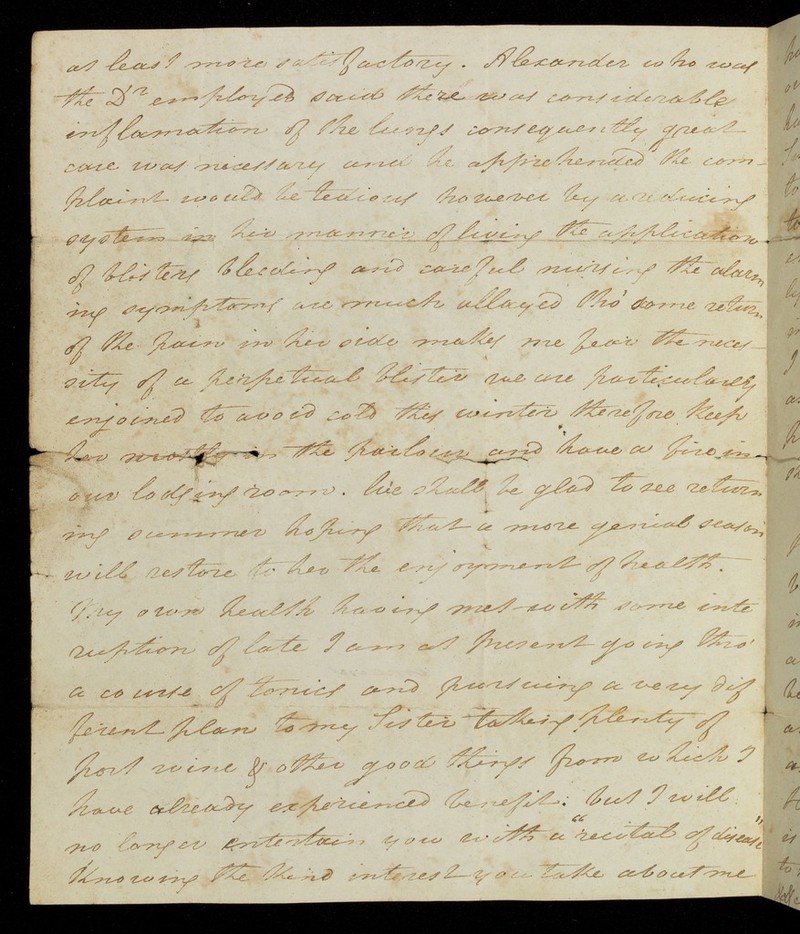 at least more satisfactory. Alexander who was
the Dr employed said there was considerable
inflamation of the lungs consequently great
care was necessary and he apprehended the com-
plaint would be tedious however by a reducing
system in her manner of living the application
of blisters bleeding and careful nursing the alarm
ing symptoms are much allayed tho' some return
of the pain in her side makes me fear the neces-
sity of a perpetual blister we are particularly
enjoined to avoid cold this winter therefore keep
her mostly in the parlour and have a fire in
our lodging room. We shall be glad to see return
ing summer hoping that a more genial season
will restore to her the enjoyment of health.
My own health having met with some inte
ruption of late I am at present going thro'
a course of tonics and pursuing a very dif
ferent plan to my Sister taking plenty of
port wine & other good things from which I
have already experienced benefit: but I will
no longer entertain you with a "recital of disease"
Knowing the kind interest you take about me